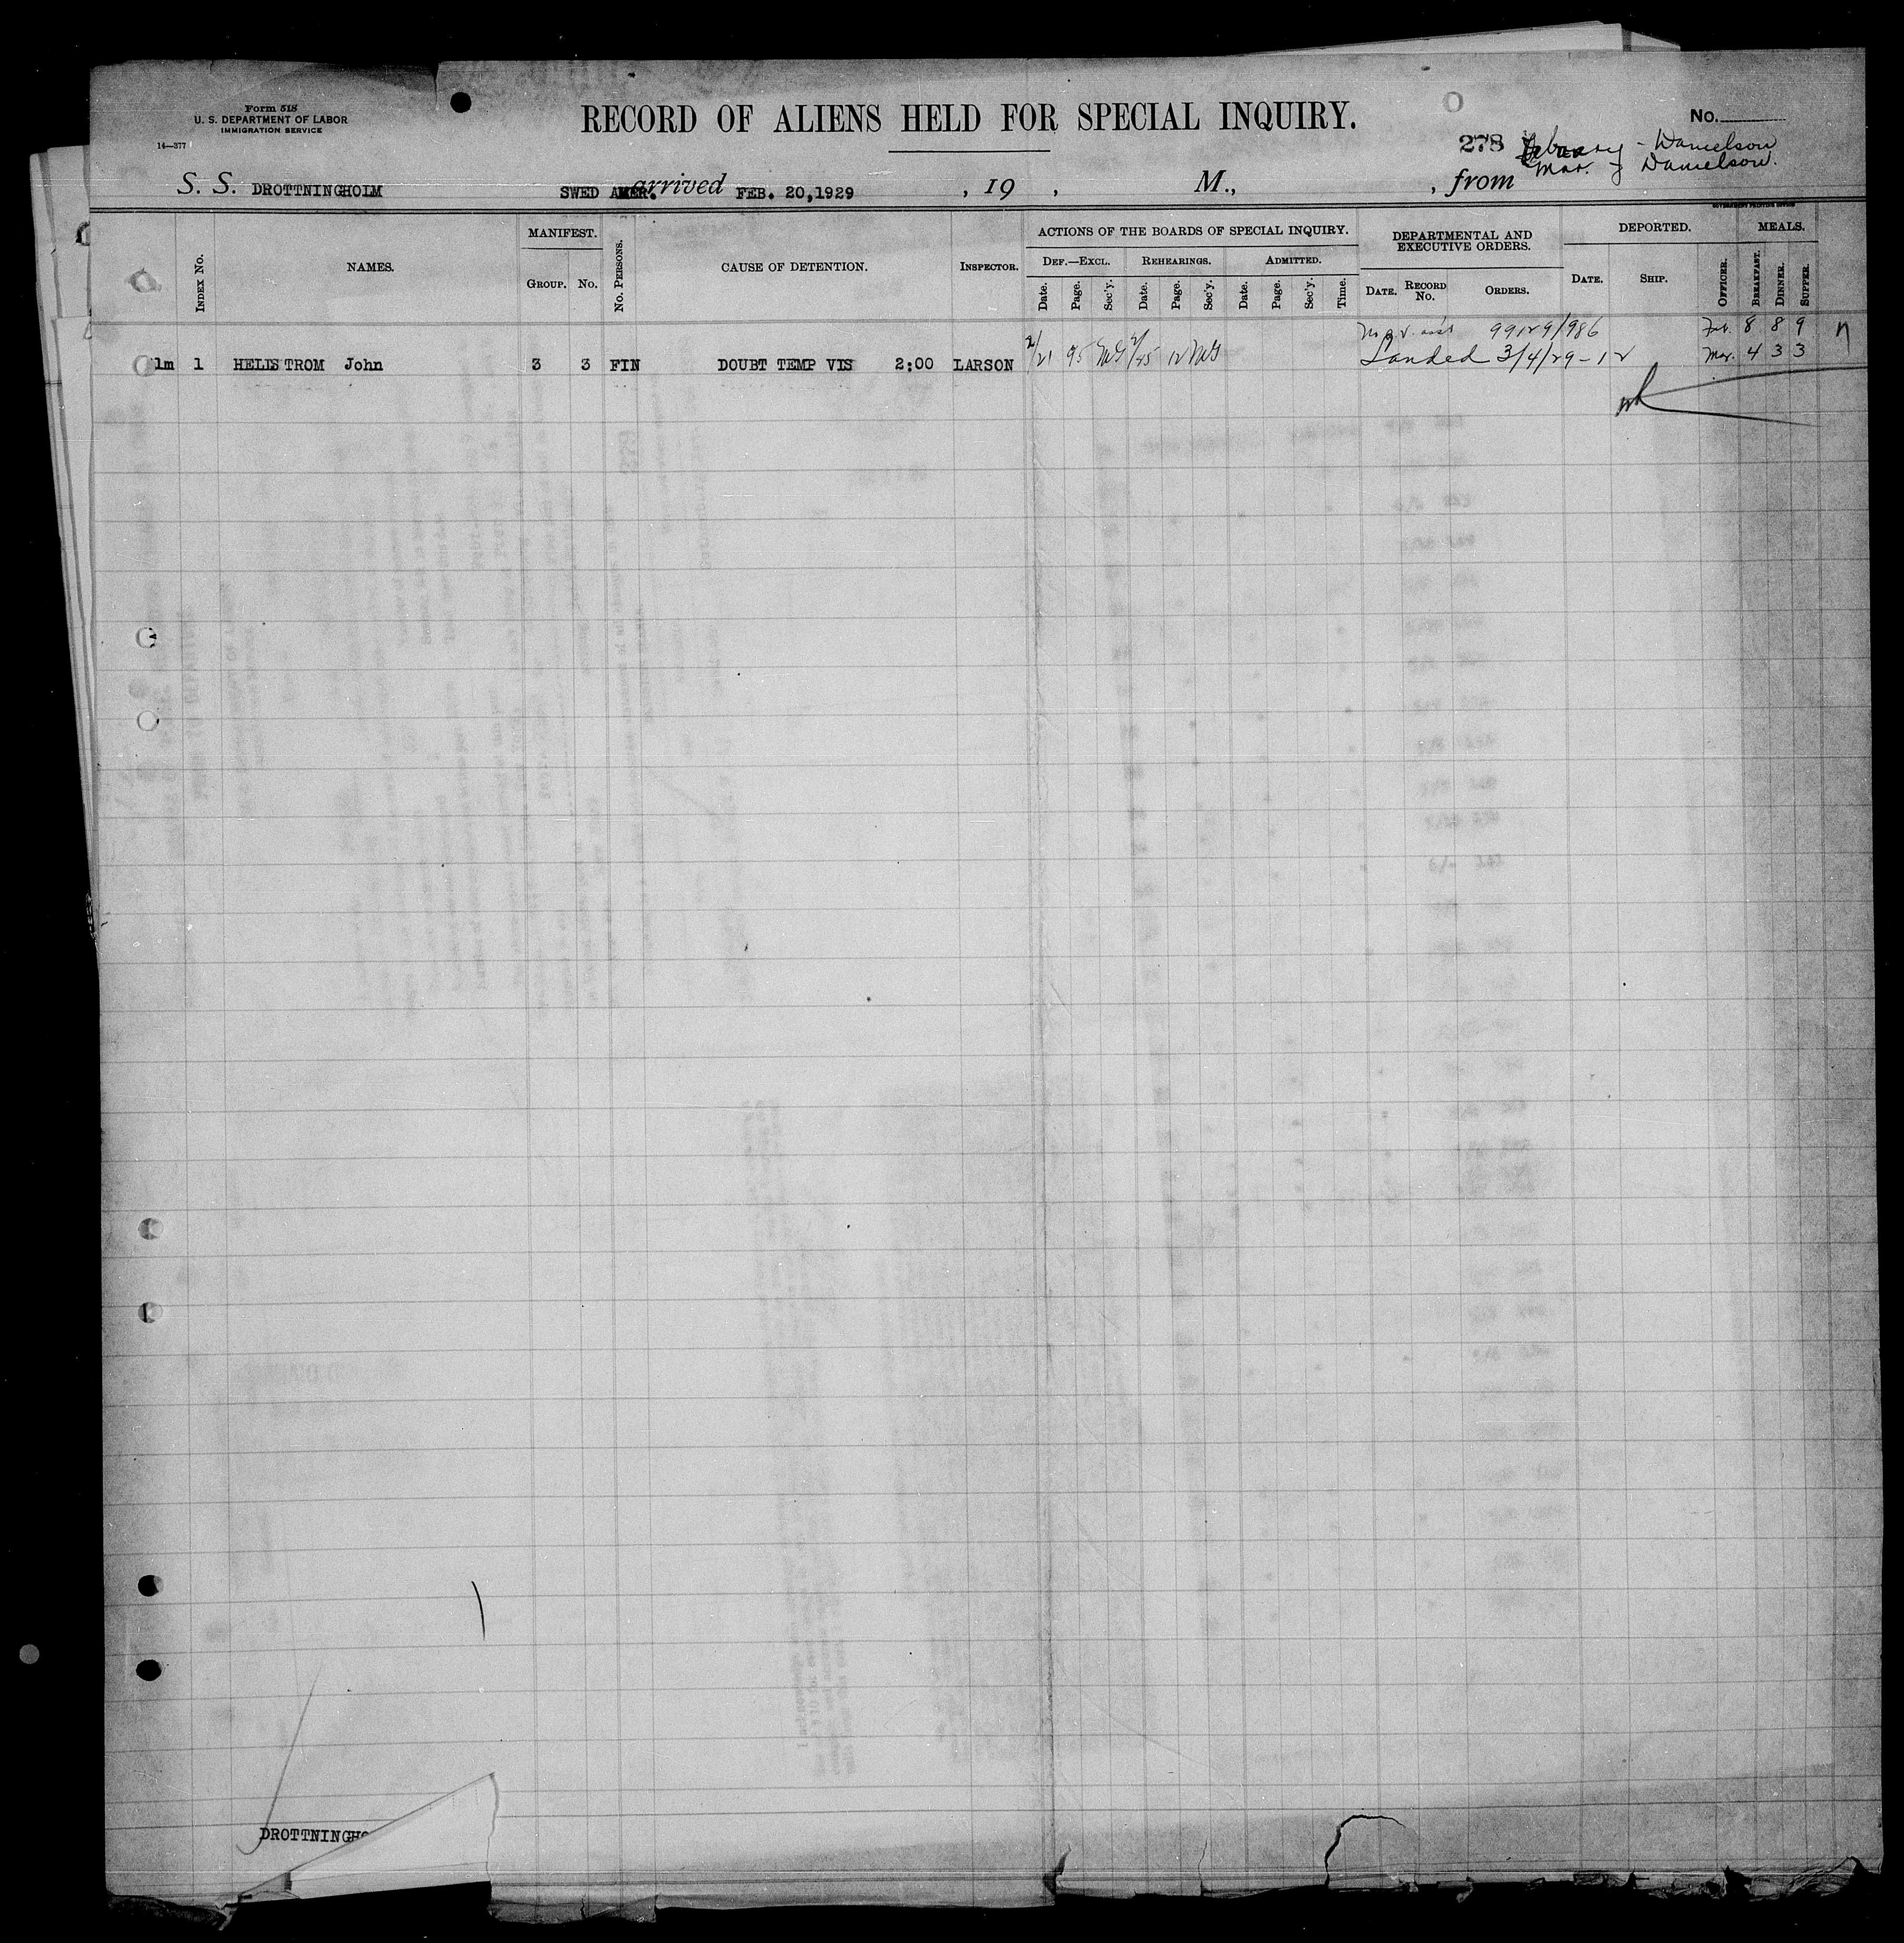 Form 518
U. S. DEPARTMENT OF LABOR
IMMIGRATION SERVICE
14—377
RECORD OF ALIENS HELD FOR SPECIAL INQUIRY.
No.
278 February - Danielson
Mar. Danielson.
S. S. DROTTNINGHOLM SWED AMER. arrived FEB. 20,1929 , 19 , M., , from
GOVERNMENT PRINTING OFFICE
INDEX No. NAMES. MANIFEST. GROUP. No. No. PERSONS. CAUSE OF DETENTION. INSPECTOR. ACTIONS OF THE BOARDS OF SPECIAL INQUIRY. DEF.—EXCL. Date. Page. Sec'y. REHEARINGS. Date. Page. Sec'y. ADMITTED. Date. Page. Sec'y. Time. DEPARTMENTAL AND EXECUTIVE ORDERS. DATE. RECORD No. ORDERS. DEPORTED. DATE. SHIP. OFFICER. MEALS. BREAKFAST. DINNER. SUPPER.
99129/986 Feb. 8 8 9
1m 1 HELLSTROM John 3 3 FIN DOUBT TEMP VIS 2:00 LARSON 2/21 95 McG 2/25 12 McG Landed 3/4/29-12 Mar. 4 3 3
DROTTNINGHO